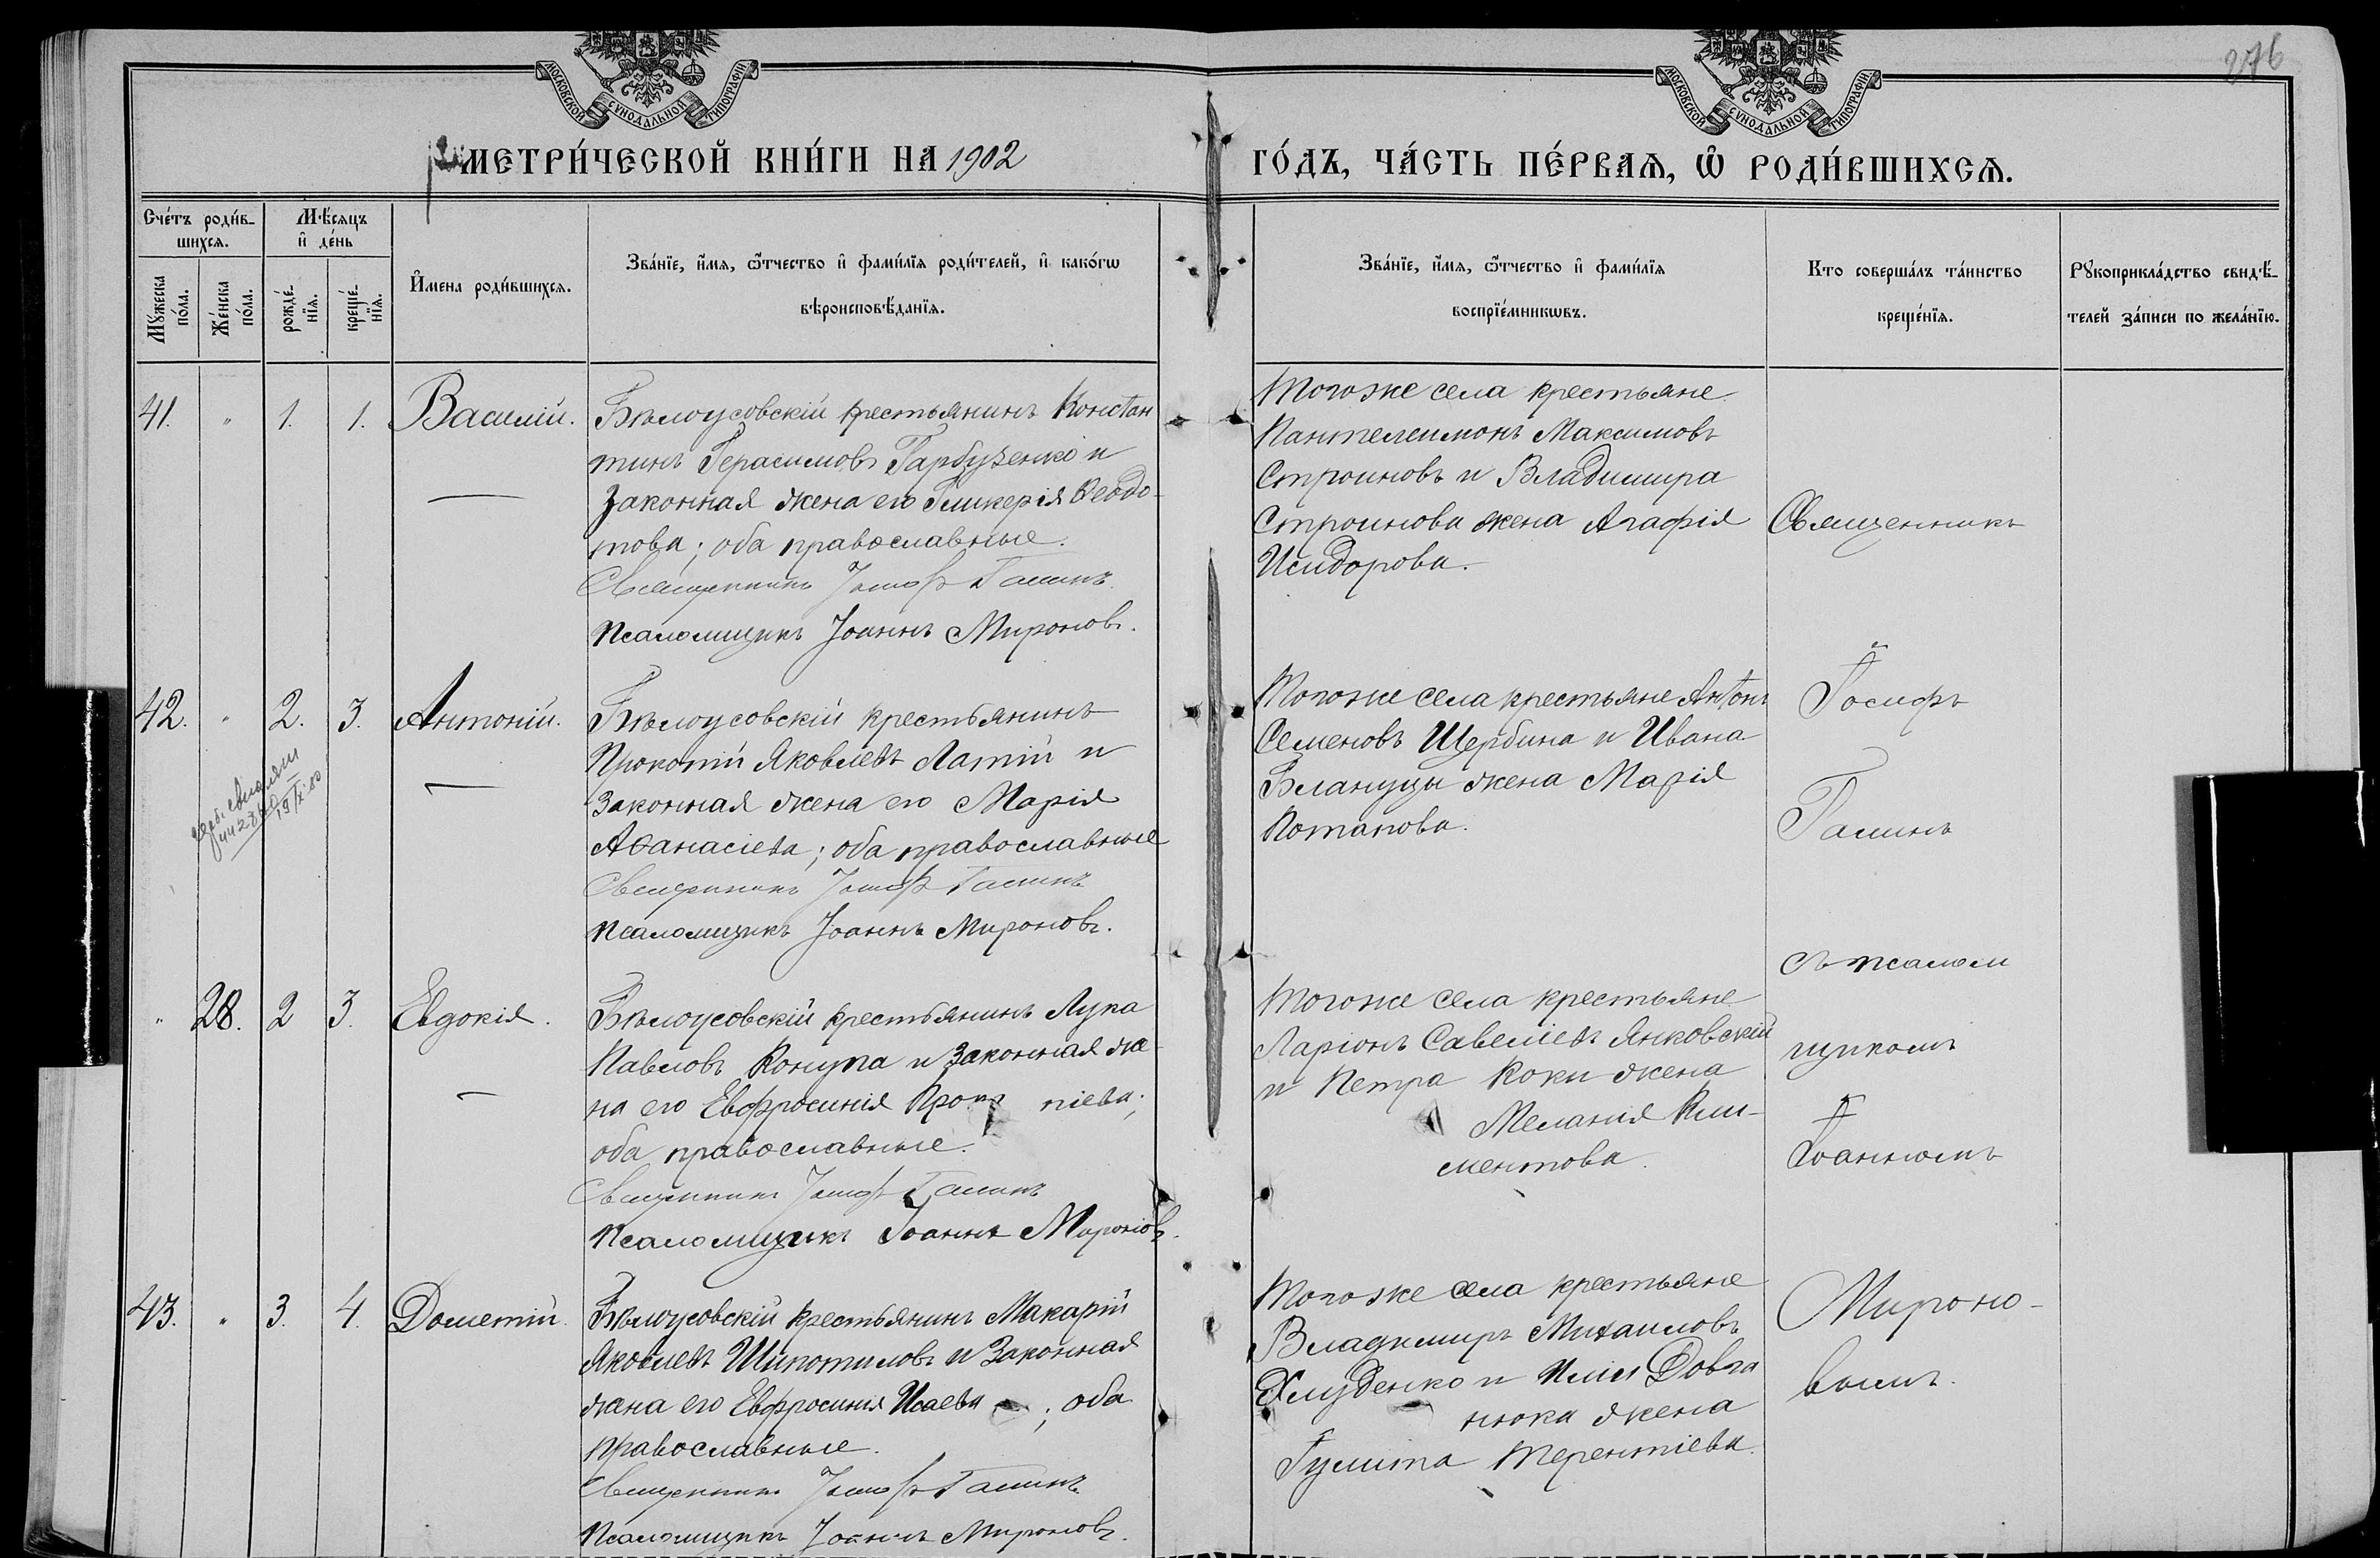 276
МОСКОВСКОЙ СУНОДАЛЬНОЙ ТИПОГРАФІИ
МОСКОВСКОЙ СУНОДАЛЬНОЙ ТИПОГРАФІИ
МЕТРИ́ЧЕСКОЙ КНИ́ГИ НА 1902
ГО́ДЪ, ЧА́СТЬ ПЕ́РВАѦ, Ѡ҆ РОДИ́ВШИХСѦ.
Сче́тъ роди́в-
шихсѧ.
Мѣ́сѧцъ
и҆ де́нь
Мꙋ́жеска по́ла.
Же́нска по́ла.
рожде́-нїѧ.
креще́-нїѧ.
И҆мена роди́вшихсѧ.
Зва́нїе, и҆́мѧ, ѻ҆́тчество и҆ фами́лїѧ роди́телей, и҆ како́гѡ
вѣроисповѣ́данїѧ.
Зва́нїе, и҆́мѧ, ѻ҆́тчество и҆ фами́лїѧ
воспрїе́мникѡвъ.
Кто соверша́лъ та́инство
креще́нїѧ.
Рꙋкоприкла́дство свидѣ́-
телей за́писи по жела́нїю.
41. " 1. 1. Василій.
Бѣлоусовскій крестьянинъ Констан
тинъ Герасимовъ Гарбузенко и
законная жена его Гликерія Ѳеодо-
това; оба православные.
Священникъ Іосифъ Галинъ
Псаломщикъ Іоаннъ Мироновъ.
Тогоже села крестьяне
Пантелеимонъ Максимовъ
Строиновъ и Владимира
Строинова жена Агафія
Исидорова.
42. " 2. 3. Антоній.
Бѣлоусовскій крестьянинъ
Прокопій Яковлевъ Латій и
законная жена его Марія
Аѳанасіева; оба православные
Священникъ Іосифъ Галинъ
Псаломщикъ Іоаннъ Мироновъ.
Тогоже села крестьяне Антонъ
Семеновъ Щербина и Ивана
Блануцы жена Марія
Потапова.
" 28. 2 3. Евдокія.
Бѣлоусовскій крестьянинъ Лука
Павловъ Концупа и законная же-
на его Евфросинія Прок піева;
оба православные.
Священникъ Іосифъ Галинъ
Псаломщикъ Іоаннъ Мироновъ.
Тогоже села крестьяне
Ларіонъ Савеліевъ Янковскій
и Петра Коки жена
Меланія Кли-
ментова.
43. " 3. 4. Дометій.
Бѣлоусовскій крестьянинъ Макарій
Яковлевъ Шипотиловъ и законная
жена его Евфросинія Исаева ; оба
православные.
Священникъ Іосифъ Галинъ
Псаломщикъ Іоаннъ Мироновъ.
Тогоже села крестьяне
Владимиръ Михаиловъ
Хлуденко и Иліи Довга
нюка жена
Іулита Терентіева.
Священникъ
Іосифъ
Галинъ
съ псалом
щикомъ
Іоанномъ
Мироно-
вымъ.